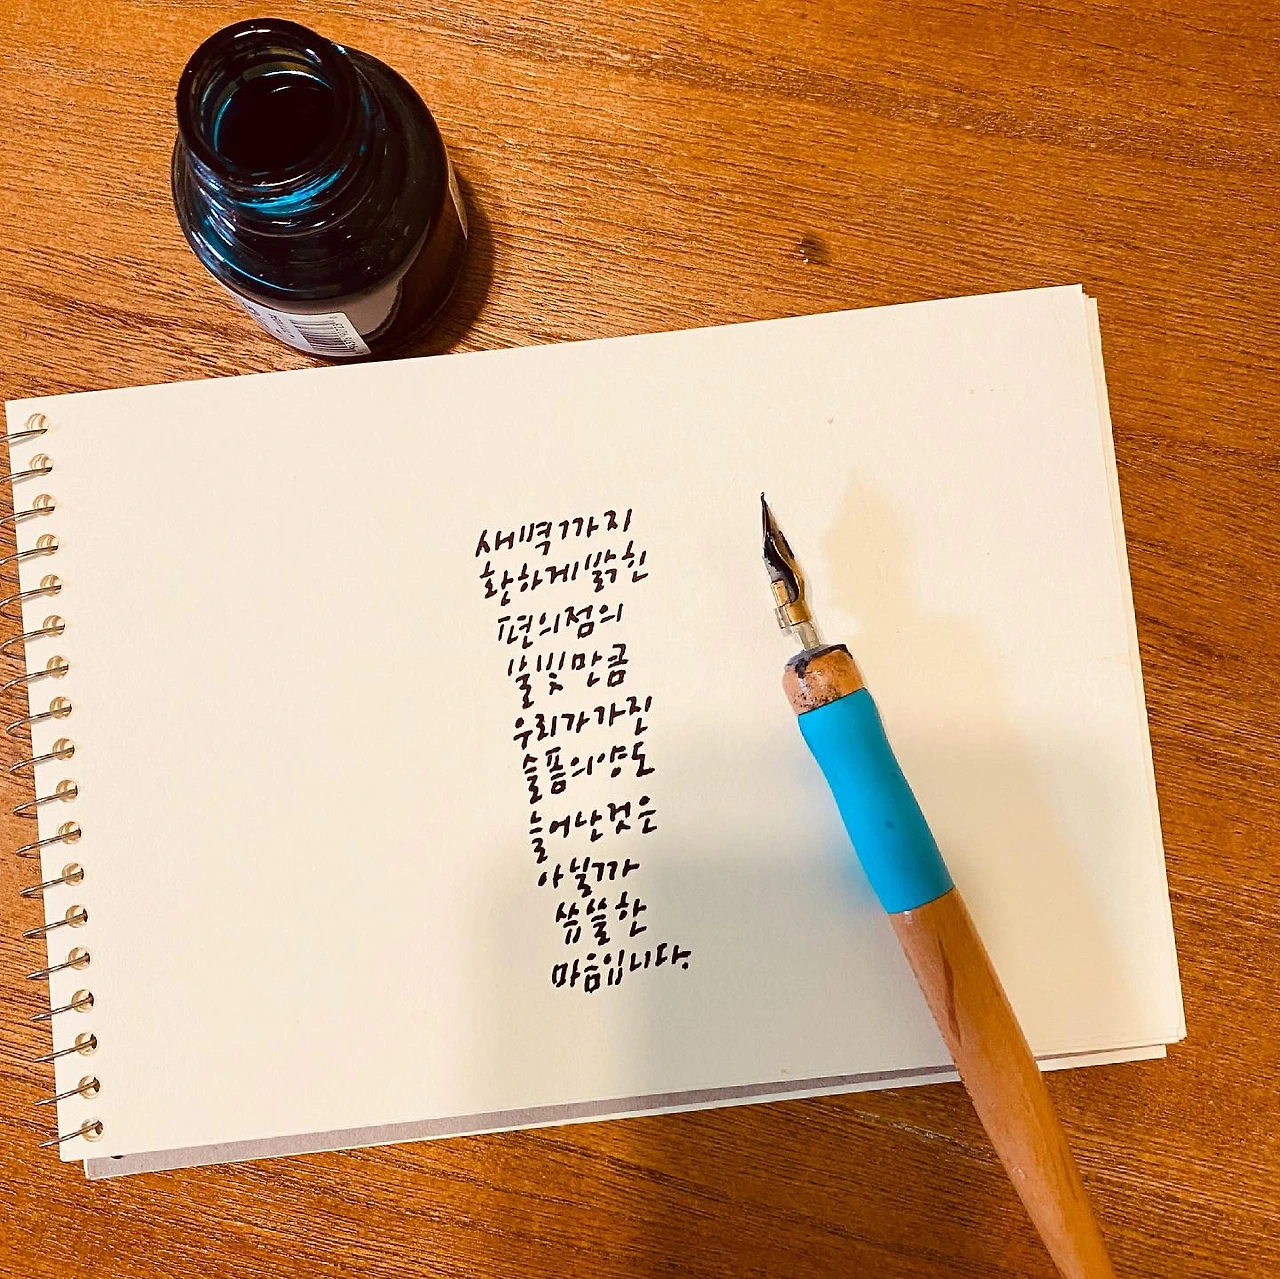 새벽까지
환하게 밝힌
편의점의
불빛만큼
우리가 가진
슬픔의 양도
늘어난 것은
아닐까
씁쓸한
마음입니다.